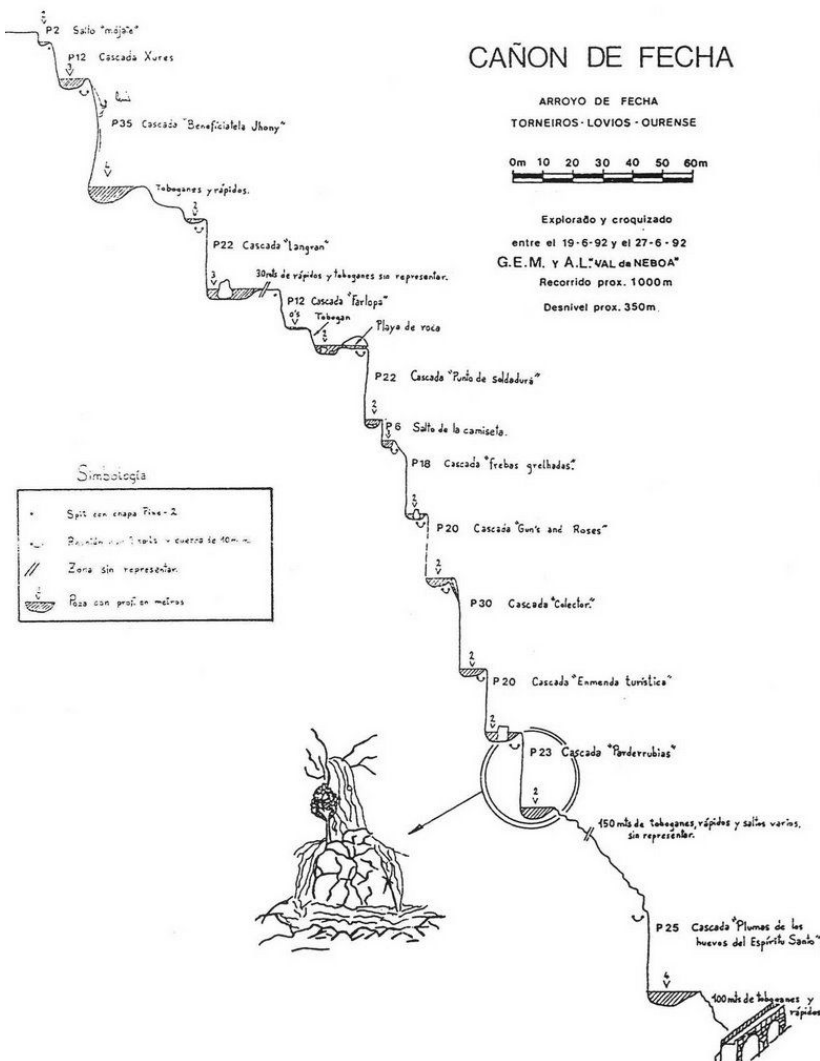 CAÑON DE FECHA
ARROYO DE FECHA
TORNEIROS - LOVIOS - OURENSE
0m 10 20 30 40 50 60m
Explorado y croquizado
entre el 19-6-92 y el 27-6-92
G.E.M. Y A.L."VAL da NEBOA"
Recorrido prox. 1000m
Desnivel prox. 350m
P2 Salto "mójate"
P12 Cascada Xures
3
P35 Cascada "Beneficialela Jhony"
4
Toboganes y rápidos.
2
P22 Cascada "Langran"
3
30mts de rápidos y toboganes sin representar.
P12 Cascada "Farlopa"
0'5
Tobogan
2
Playa de roca
P22 Cascada "Punto de soldadura"
2
P6 Salto de la camiseta.
3
P18 Cascada "frebas grelhadas."
2
P20 Cascada "Gun's and Roses"
2
P30 Cascada "Colector."
2
P20 Cascada "Enmenda turística"
2
P23 Cascada "Parderrubias"
2
150 mts de toboganes, rápidos y saltos varios,
sin representar.
P25 Cascada "Plumas de los
huevos del Espíritu Santo"
4
100 mts de toboganes y
rápidos
Simbología
Spit con chapa Fixe-2
Reunión con spits y cuerda de 10m.m.
Zona sin representar.
Poza con prof. en metros